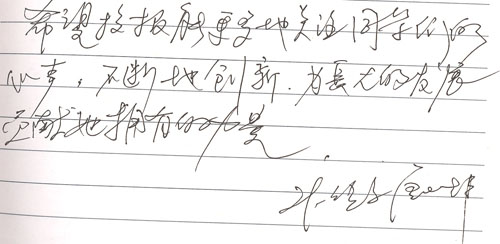 希望校报能更多地关注同学们的
心事，不断地创新，为长大的发展
贡献她拥有的力量